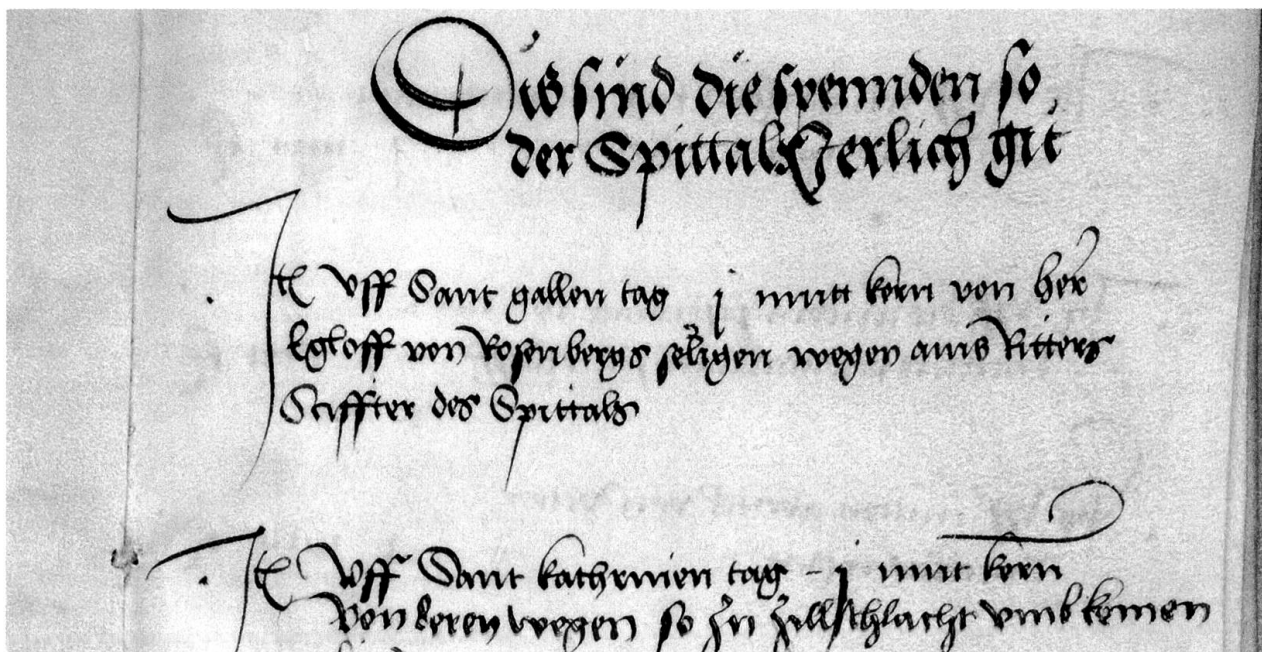 Dis sind die spennden so
der Spittal Jerlich git
Itē vff Sant gallen tag j mutt kern von her
Egloff von Rosenbergs seligen wegen ains Ritters
Stiffter des Spittals
Itē Vff Sant kathrinen tag - j mut kern
von deren wegen so zu zillschlacht vmb komen